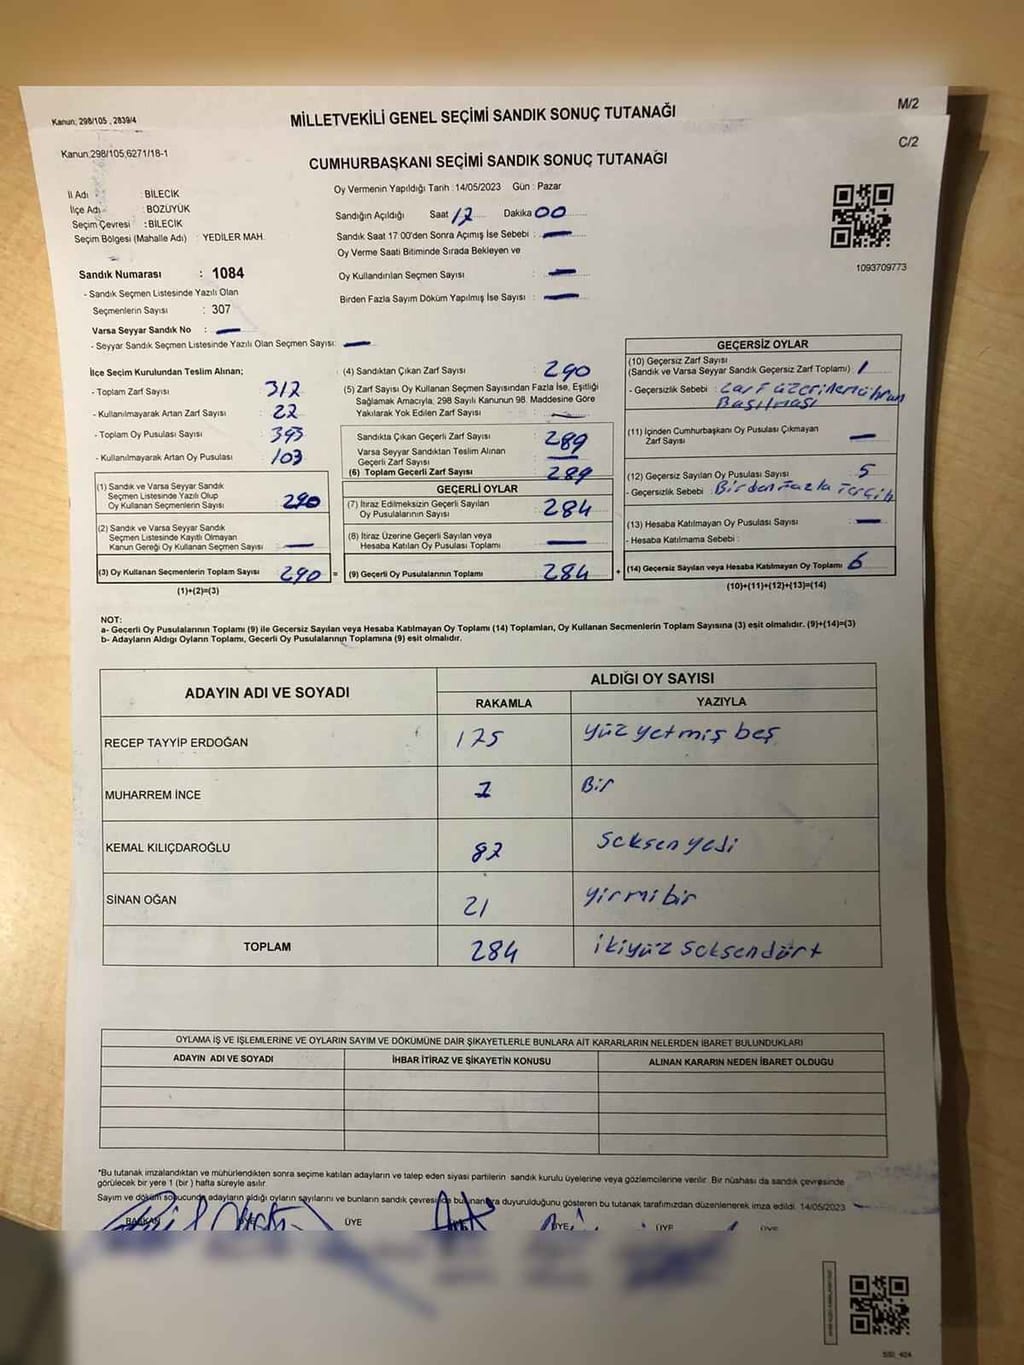 Kanun; 298/105 , 2839/4
MİLLETVEKİLİ GENEL SEÇİMİ SANDIK SONUÇ TUTANAĞI
M/2
Kanun;298/105,6271/18-1
CUMHURBAŞKANI SEÇİMİ SANDIK SONUÇ TUTANAĞI
C/2
İl Adı : BİLECİK
İlçe Adı : BOZÜYÜK
Seçim Çevresi : BİLECİK
Seçim Bölgesi (Mahalle Adı) : YEDİLER MAH.
Sandık Numarası : 1084
- Sandık Seçmen Listesinde Yazılı Olan
Seçmenlerin Sayısı : 307
Varsa Seyyar Sandık No : —
- Seyyar Sandık Seçmen Listesinde Yazılı Olan Seçmen Sayısı: —
Oy Vermenin Yapıldığı Tarih : 14/05/2023 Gün : Pazar
Sandığın Açıldığı Saat 17 Dakika 00
Sandık Saat 17:00'den Sonra Açılmış İse Sebebi : —
Oy Verme Saati Bitiminde Sırada Bekleyen ve
Oy Kullandırılan Seçmen Sayısı : —
Birden Fazla Sayım Döküm Yapılmış İse Sayısı : —
1093709773
İlçe Seçim Kurulundan Teslim Alınan;
- Toplam Zarf Sayısı : 312
- Kullanılmayarak Artan Zarf Sayısı : 22
- Toplam Oy Pusulası Sayısı : 393
- Kullanılmayarak Artan Oy Pusulası : 103
(1) Sandık ve Varsa Seyyar Sandık
Seçmen Listesinde Yazılı Olup
Oy Kullanan Seçmenlerin Sayısı 290
(2) Sandık ve Varsa Seyyar Sandık
Seçmen Listesinde Kayıtlı Olmayan
Kanun Gereği Oy Kullanan Seçmen Sayısı —
(3) Oy Kullanan Seçmenlerin Toplam Sayısı 290 =
(1)+(2)=(3)
(4) Sandıktan Çıkan Zarf Sayısı : 290
(5) Zarf Sayısı Oy Kullanan Seçmen Sayısından Fazla İse, Eşitliği
Sağlamak Amacıyla, 298 Sayılı Kanunun 98. Maddesine Göre
Yakılarak Yok Edilen Zarf Sayısı : —
Sandıkta Çıkan Geçerli Zarf Sayısı : 289
Varsa Seyyar Sandıktan Teslim Alınan
Geçerli Zarf Sayısı —
(6) Toplam Geçerli Zarf Sayısı : 289
GEÇERLİ OYLAR
(7) İtiraz Edilmeksizin Geçerli Sayılan
Oy Pusulalarının Sayısı : 284
(8) İtiraz Üzerine Geçerli Sayılan veya
Hesaba Katılan Oy Pusulası Toplamı : —
(9) Geçerli Oy Pusulalarının Toplamı : 284 +
GEÇERSİZ OYLAR
(10) Geçersiz Zarf Sayısı
(Sandık ve Varsa Seyyar Sandık Geçersiz Zarf Toplamı) : 1
- Geçersizlik Sebebi : Zarf üzerine mühür
Basılması
(11) İçinden Cumhurbaşkanı Oy Pusulası Çıkmayan
Zarf Sayısı : —
(12) Geçersiz Sayılan Oy Pusulası Sayısı : 5
- Geçersizlik Sebebi : Birden Fazla Tercih
(13) Hesaba Katılmayan Oy Pusulası Sayısı : —
- Hesaba Katılmama Sebebi :
(14) Geçersiz Sayılan veya Hesaba Katılmayan Oy Toplamı : 6
(10)+(11)+(12)+(13)=(14)
NOT:
a- Geçerli Oy Pusulalarının Toplamı (9) ile Geçersiz Sayılan veya Hesaba Katılmayan Oy Toplamı (14) Toplamları, Oy Kullanan Seçmenlerin Toplam Sayısına (3) eşit olmalıdır. (9)+(14)=(3)
b- Adayların Aldığı Oyların Toplamı, Geçerli Oy Pusulalarının Toplamına (9) eşit olmalıdır.
ADAYIN ADI VE SOYADI
ALDIĞI OY SAYISI
RAKAMLA YAZIYLA
RECEP TAYYİP ERDOĞAN 175 Yüz yetmiş beş
MUHARREM İNCE 1 Bir
KEMAL KILIÇDAROĞLU 87 Seksen yedi
SİNAN OĞAN 21 yirmi bir
TOPLAM 284 ikiyüz seksendört
OYLAMA İŞ VE İŞLEMLERİNE VE OYLARIN SAYIM VE DÖKÜMÜNE DAİR ŞİKAYETLERLE BUNLARA AİT KARARLARIN NELERDEN İBARET BULUNDUKLARI
ADAYIN ADI VE SOYADI İHBAR İTİRAZ VE ŞİKAYETİN KONUSU ALINAN KARARIN NEDEN İBARET OLDUGU
*Bu tutanak imzalandıktan ve mühürlendikten sonra seçime katılan adayların ve talep eden siyasi partilerin sandık kurulu üyelerine veya gözlemcilerine verilir. Bir nüshası da sandık çevresinde
görülecek bir yere 1 (bir ) hafta süreyle asılır.
Sayım ve döküm sonucunda adayların aldığı oyların sayılarını ve bunların sandık çevresinde bulunanlara duyurulduğunu gösteren bu tutanak tarafımızdan düzenlenerek imza edildi. 14/05/2023
BAŞKAN ÜYE ÜYE ÜYE ÜYE